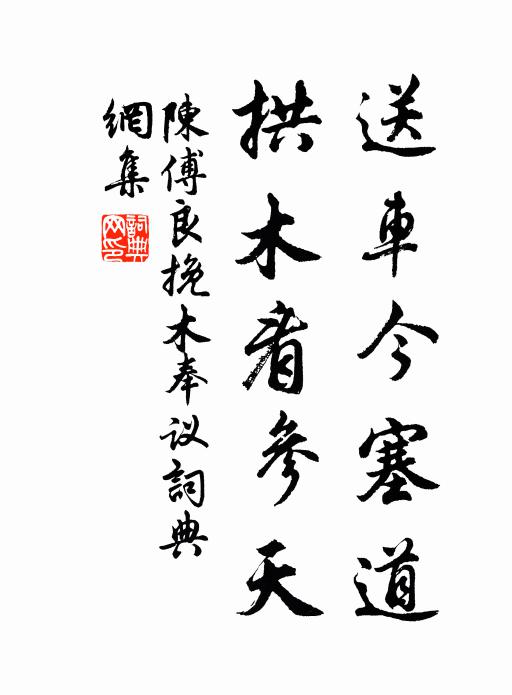 送車今塞道
拱木看參天
陳傅良挽木奉议詞典
網集
詞典
网印